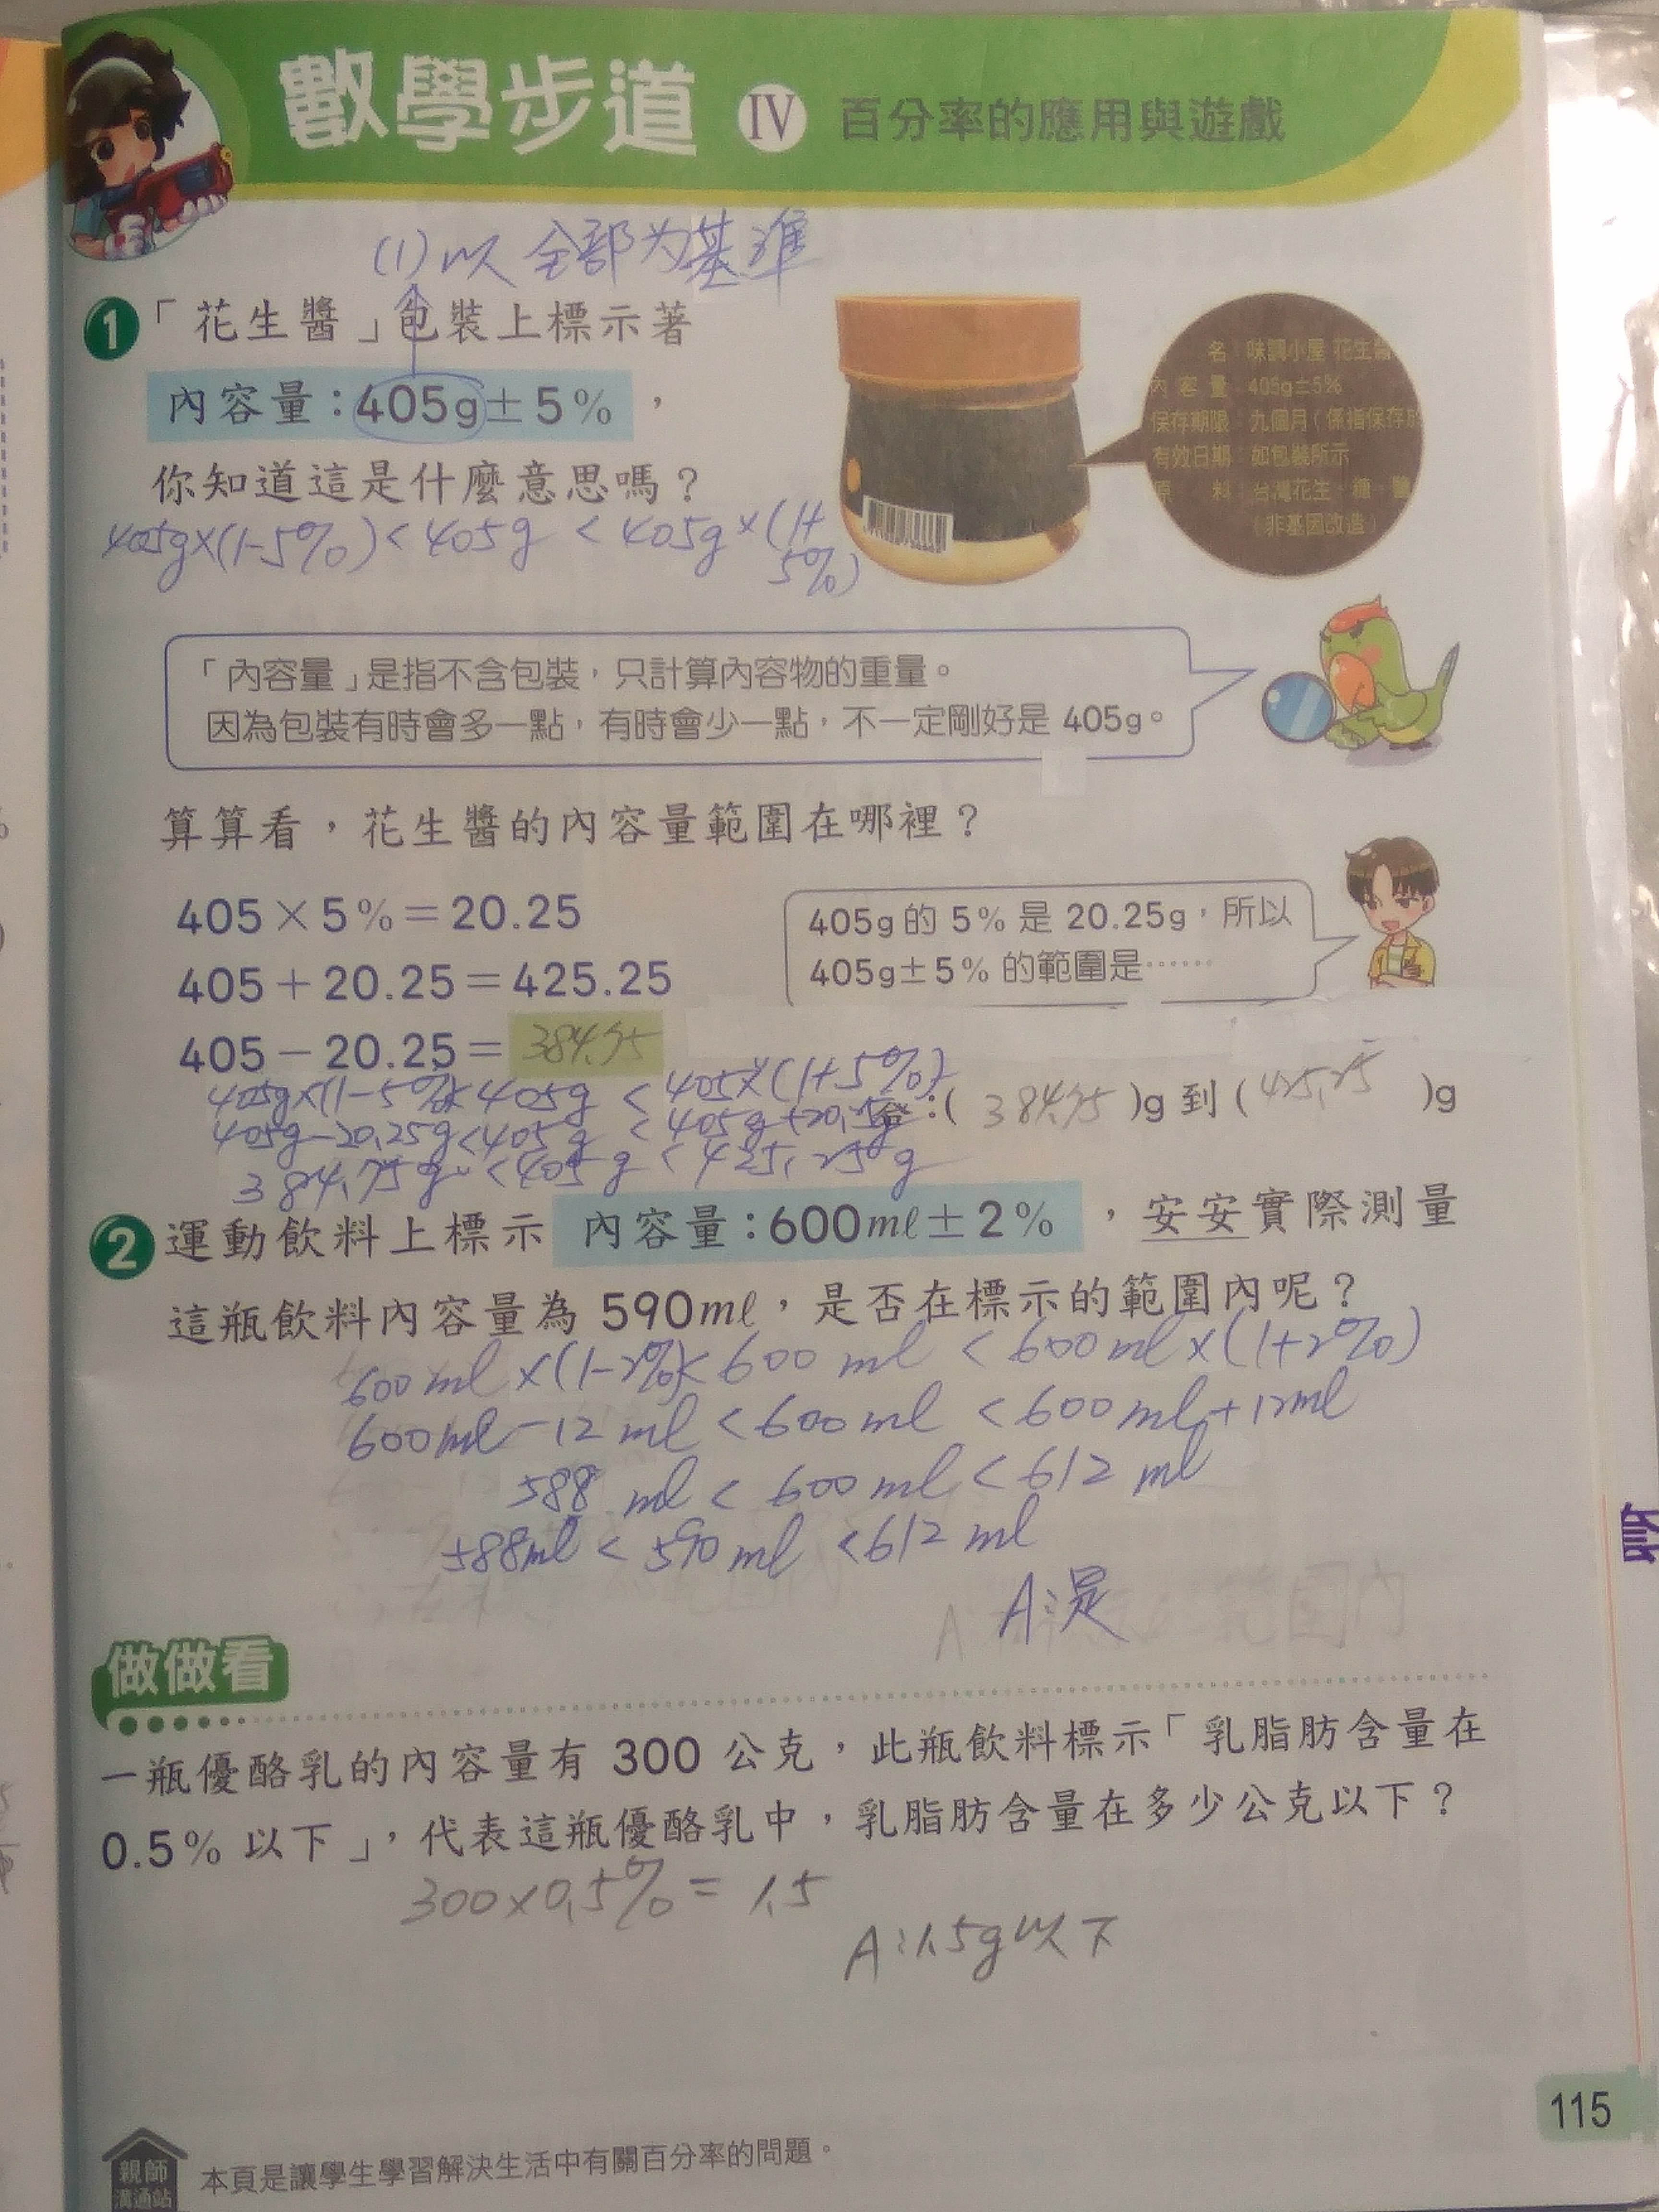 數學步道 IV 百分率的應用與遊戲
(1)以全部為基準
1 「花生醬」包裝上標示著
內容量:405g±5%,
你知道這是什麼意思嗎?
405g×(1-5%)<405g<405g×(1+
5%)
名 味調小屋 花生醬
內容量 405g±5%
保存期限 九個月(係指保存於
有效日期 如包裝所示
原 料 台灣花生、糖、鹽
(非基因改造)
「內容量」是指不含包裝,只計算內容物的重量。
因為包裝有時會多一點,有時會少一點,不一定剛好是 405g。
算算看,花生醬的內容量範圍在哪裡?
405×5%=20.25
405+20.25=425.25
405-20.25=384.75
405g的5%是20.25g,所以
405g±5%的範圍是……
405g×(1-5%)<405g<405×(1+5%)
答:(384.75)g到(425.25)g
405g-20.25g<405g<405g+20.25g
384.75g<405g<425.25g
2 運動飲料上標示 內容量:600mℓ±2%,安安實際測量
這瓶飲料內容量為 590mℓ,是否在標示的範圍內呢?
600ml×(1-2%)<600ml<600ml×(1+2%)
600ml-12ml<600ml<600ml+12ml
588ml<600ml<612ml
588ml<590ml<612ml
A:是
做做看
一瓶優酪乳的內容量有 300 公克,此瓶飲料標示「乳脂肪含量在
0.5%以下」,代表這瓶優酪乳中,乳脂肪含量在多少公克以下?
300×0.5%=1.5
A:1.5g以下
115
親師
溝通站
本頁是讓學生學習解決生活中有關百分率的問題。